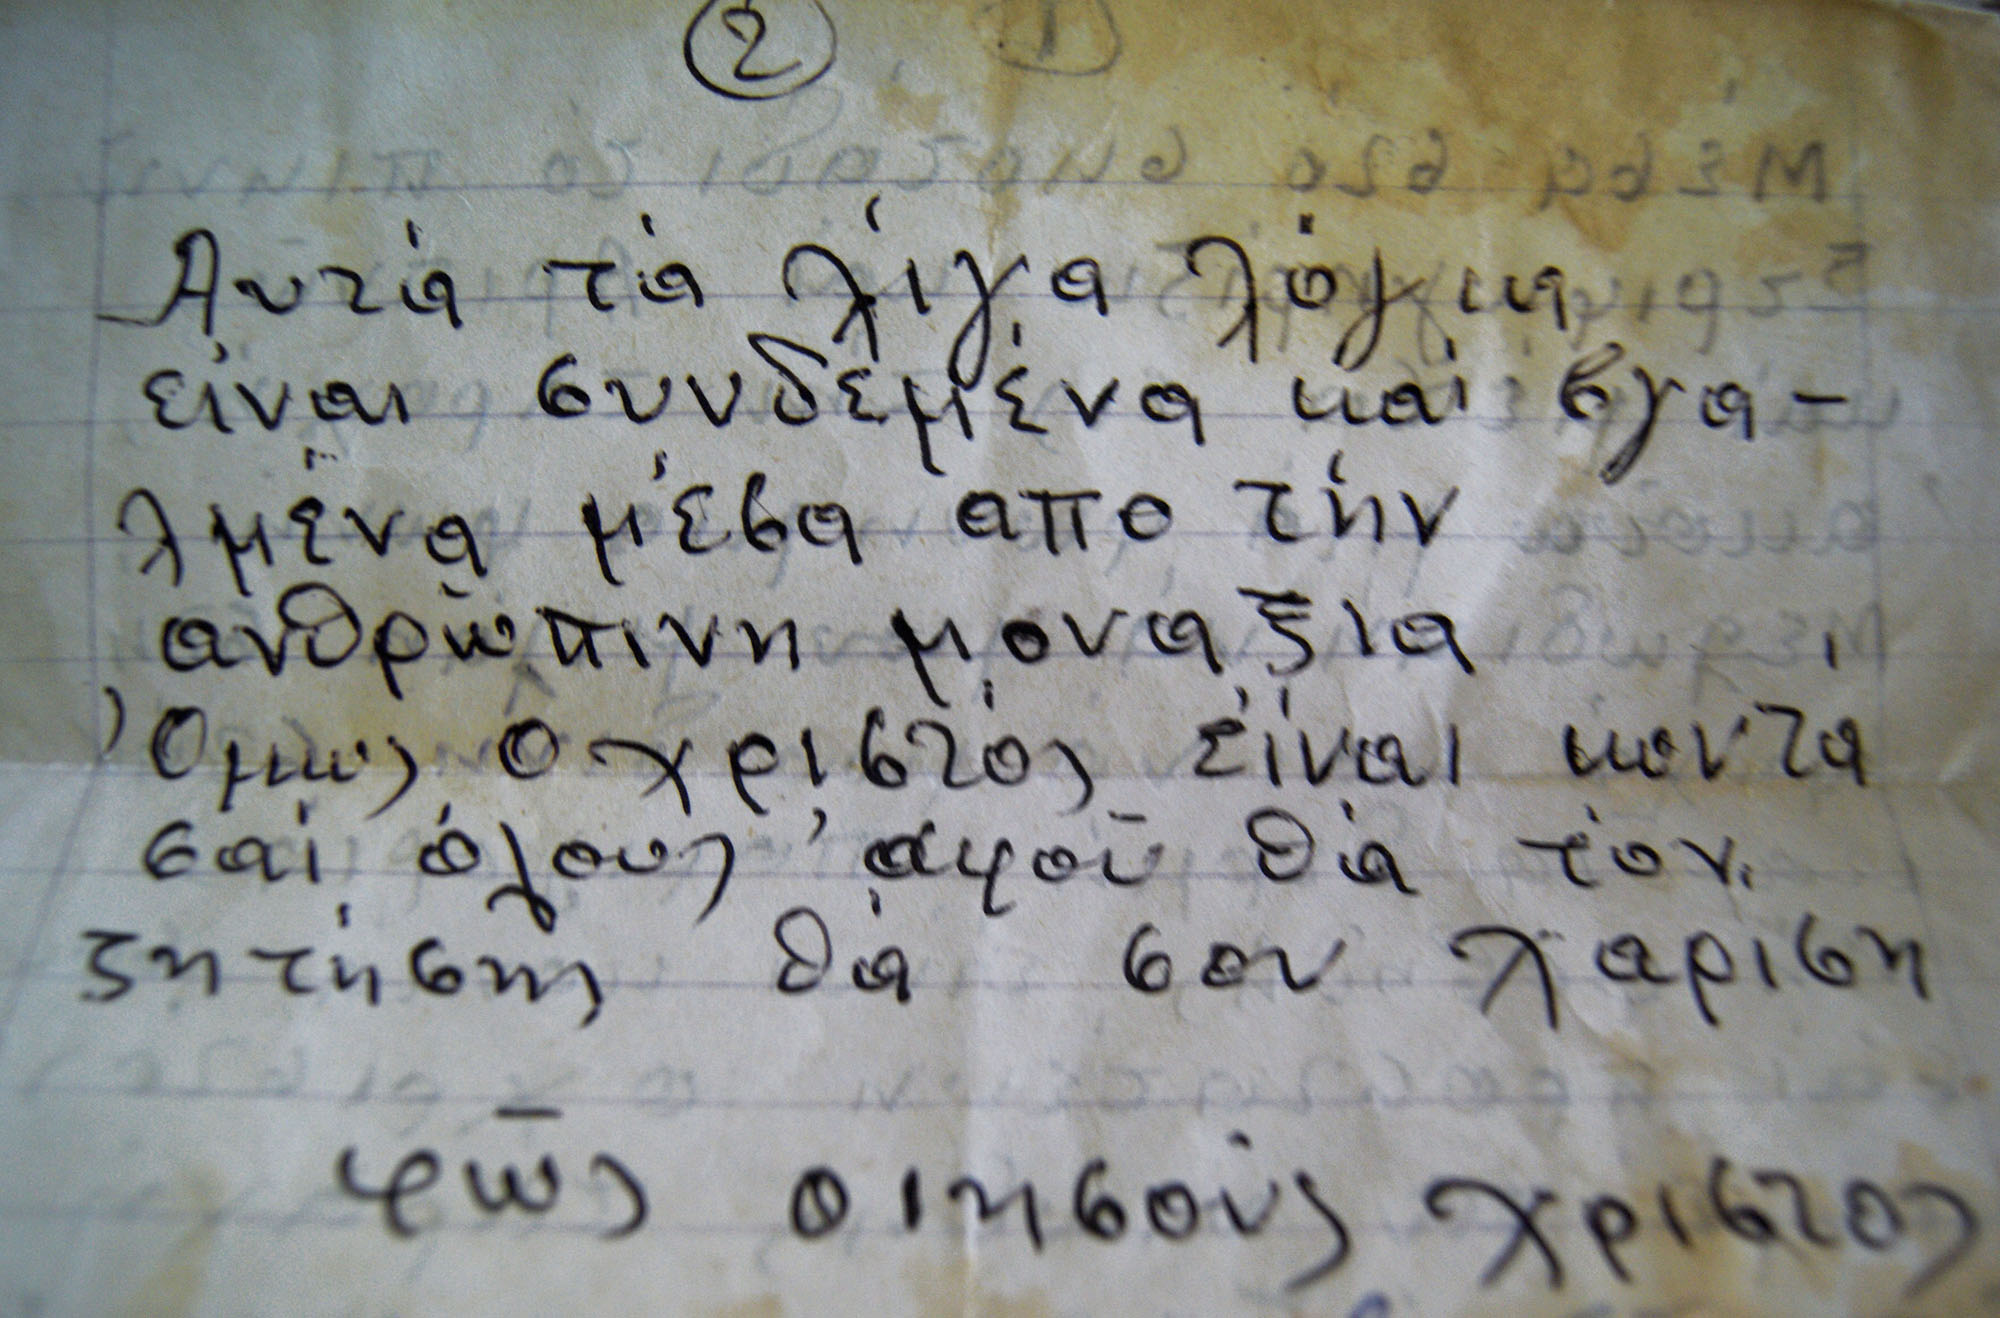 2
Αυτά τά λίγα λόγια
είναι συνδεμένα καί βγα-
λμένα μέσα απο τήν
ανθρώπινη μοναξια
Όμως ο χριστός είναι κοντά
σαί όλους, αφού θά τον
ζητήσης θά σου χαριση
φῶς ο ιησούς χριστος